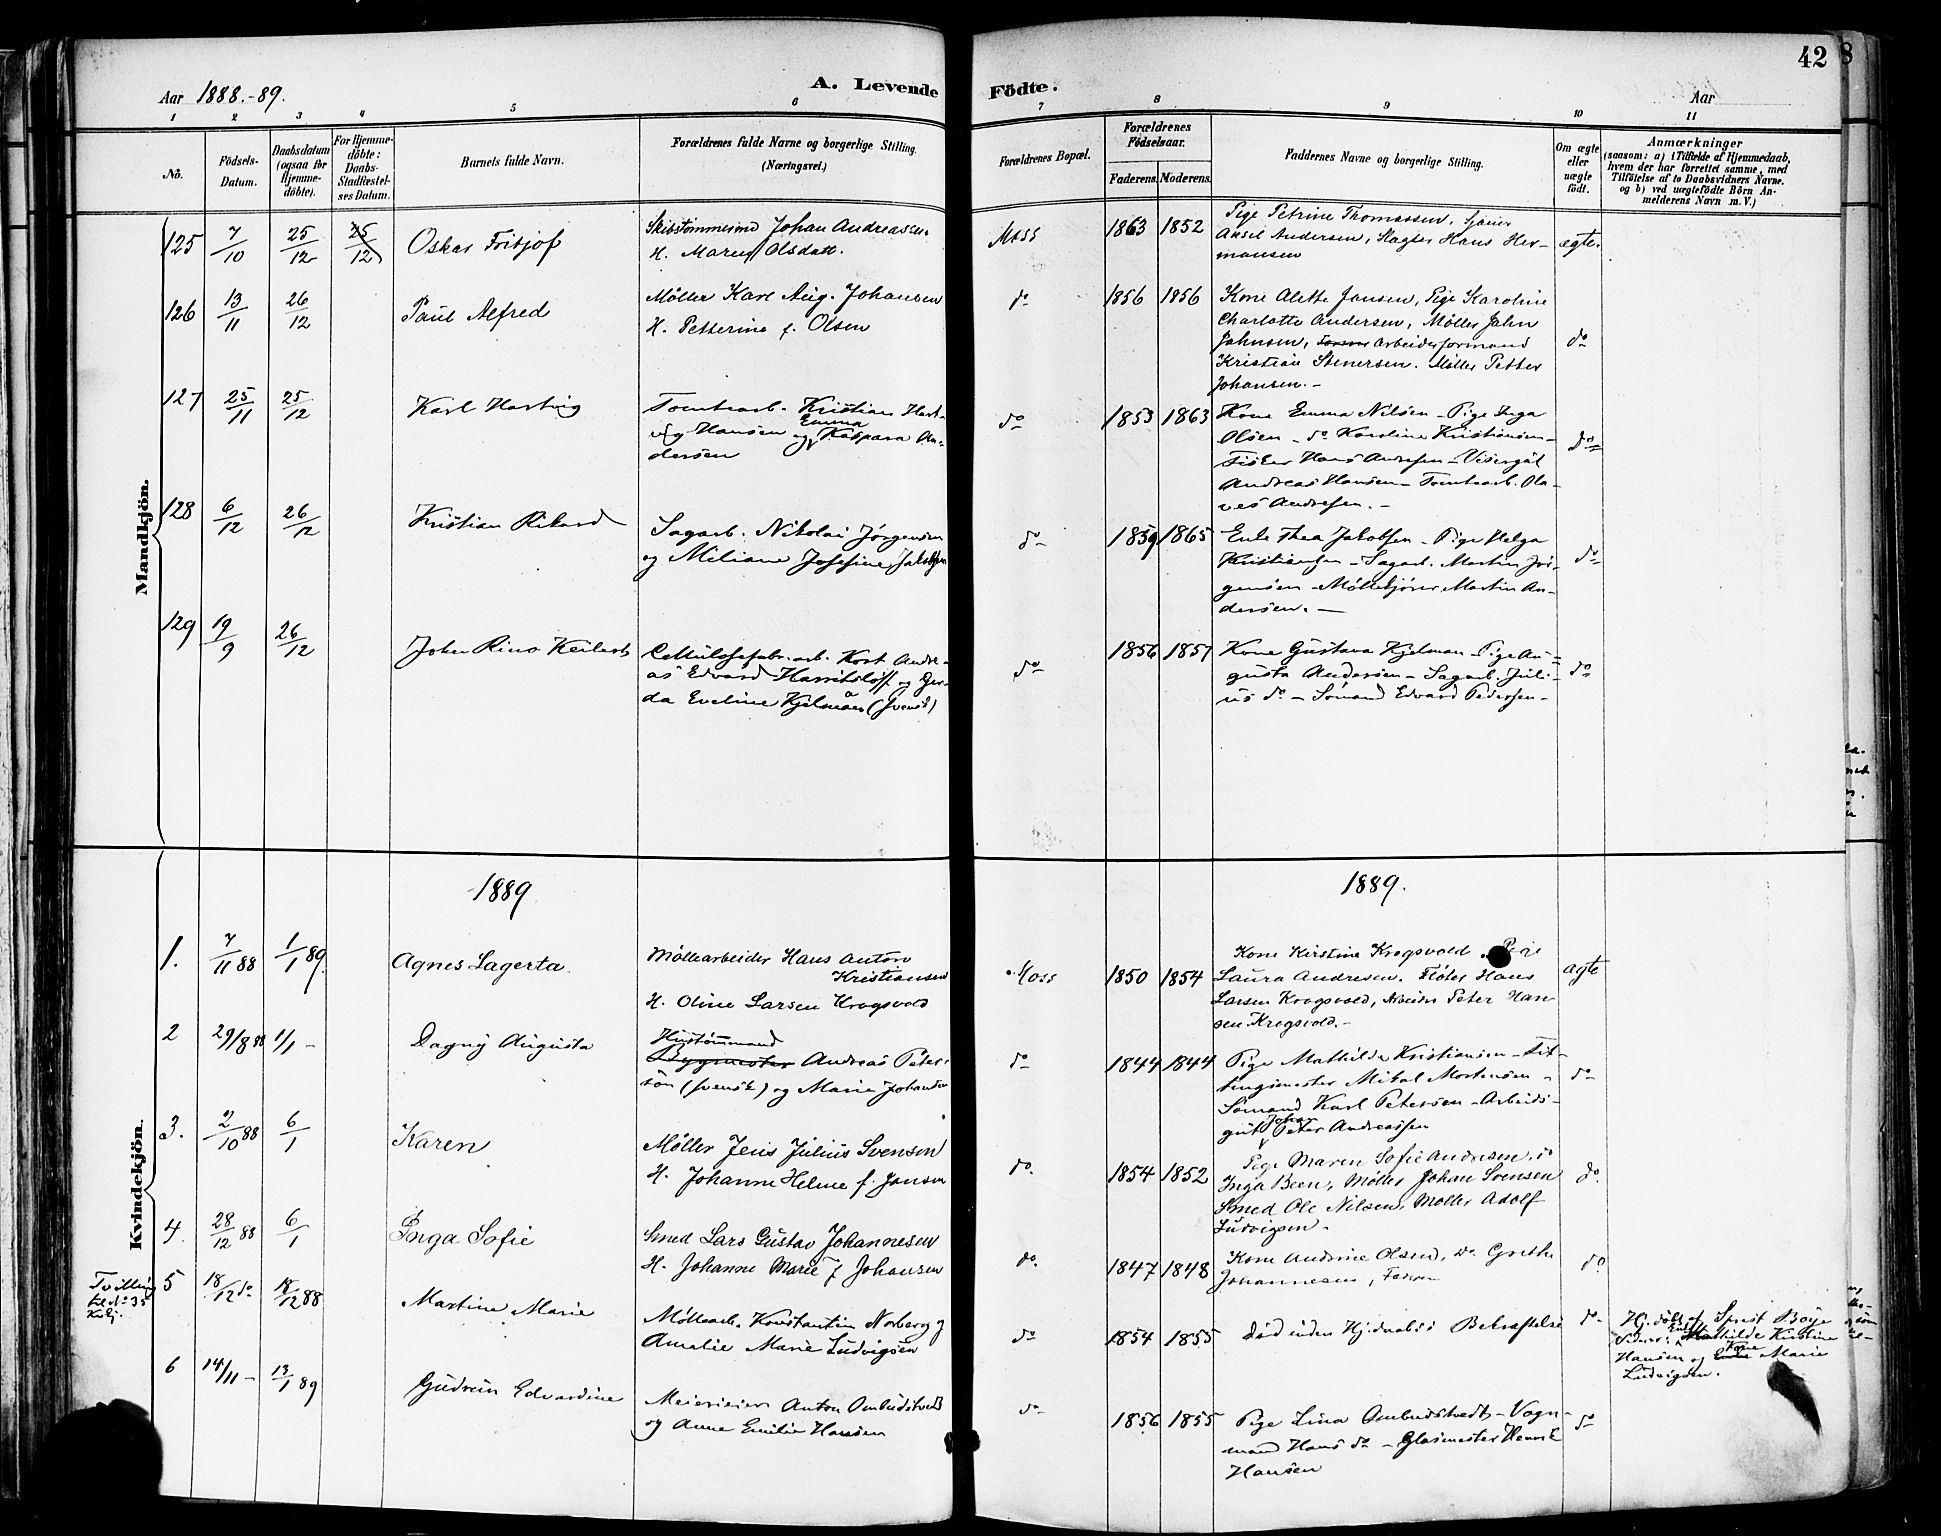 42
Aar 1888.-89.
A. Levende Födte.
Aar
1 2 3 4 5 6 7 8 9 10 11
No.
Födsels-Datum.
Daabsdatum (ogsaa for Hjemme-döbte).
For Hjemme-döbte: Daabs-Stadfæstel-ses Datum.
Barnets fulde Navn.
Forældrenes fulde Navne og borgerlige Stilling. (Næringsvei.)
Forældrenes Bopæl.
Forældrenes Födselsaar.
Faderens. Moderens.
Faddernes Navne og borgerlige Stilling.
Om ægte eller uægte födt.
Anmærkninger
(saasom: a) i Tilfælde af Hjemmedaab, hvem der har forrettet samme, med Tilföielse af to Daabsvidners Navne. og b) ved uægtefödte Börn An-melderens Navn m. V.)
Mandkjön.
125 7/10 25/12 25/12 Oskar Fritjof
Skibstømmermd Johan Andreassen
H. Maren Olsdatt.
Moss 1863 1852
Pige Petrine Thomassen, Sjauer
Aksel Andersen, Slagter Hans Her-
mansen
ægte
126 13/11 26/12 Paul Alfred
Møller Karl Aug. Johansen
H. Petterine f. Olsen
do 1856 1856
Kone Alette Jansen, Pige Karoline
Charlotte Andersen, Møller Jahn
Johnsen, Arbeidsformand
Kristian Stenersen. Møller Petter
Johansen.-
do
127 25/11 25/12 Karl Hartvig
Tomtearb. Kristian Hart-
vig Hansen og Emma Kaspara An-
dersen
do 1853 1863
Kone Emma Nilsen - Pige Inga
Olsen - do Karoline Kristiansen -
Fisker Hans Andresen - Visergut
Andreas Hansen - Tomtearb. Ola-
ves Andresen. -
do
128 6/12 26/12 Kristian Rikard
Sagarb. Nikolai Jørgensen
og Miliane Josefine Jakobsen
do 1859 1865
Enke Thea Jakobsen - Pige Helga
Kristiansen - Sagarb. Martin Jør-
gensen - Møllekjører Martin An-
dersen. -
do
129 19/9 26/12 Johan Rino
Cellulosefabr.arb. Kort Andre-
as Edvard Harritslöff og Ger-
da Eveline Kjelman (svensk)
do 1856 1857
Kone Gustava Kjelman - Pige Au-
gusta Andersen - Sagarb. Juli-
us do - Sømand Edvard Pedersen -
do
1889 1889.
Kvindekjön.
1. 7/11 88 1/1 89 Agnes Lagerta.
Møllearbeider Hans Anton
Kristiansen
H. Oline Larsen Krogsvold
Moss 1850 1854
Kone Kirstine Krogsvold, Pige
Laura Andresen. Fløter Hans
Larsen Krogsvold, Peter Han
sen Krogsvold.-
ægte
2 29/8 88 1/1 - Dagny Augusta
Hustømmand
Andreas Peter-
son (svensk) og Marie Johansen
do 1844 1844
Pige Mathilde Kristiansen - Fit-
tingsmester Mikal Mortensen -
Sømand Karl Petersen - Arbeids-
gut Johan Peter Andreassen
do
3. 2/10 88 6/1 Karen
Møller Jens Julius Svensen
H. Johanne Helene f. Jansen
do. 1854 1852
Pige Maren Sofie Andresen, do
Inga Been, Møller Johan Svensen
Smed Ole Nilsen, Møller Adolf
Ludvigsen -
do.
4 28/12 88 6/1 Inga Sofie
Smed Lars Gustav Johannesen
H. Johanne Marie f. Johansen
do. 1847 1848
Kone Andrine Olsen, do Grethe
Johannesen, Faderen
do.
Tvilling
til No 35
5 18/12 do 18/12 88 Martine Marie
Møllearb. Konstantin Norberg og
Amalie Marie Ludvigsen
do 1854 1855
Død inden Hj.daabs Bekræftelse
do-
Hj. døbt af Sprst Bøye
Vidner: Enke Mathilde Kirstine
Hansen og Kone Marie
Ludvigsen.
6 14/11 - 13/1 89 Gudrun Edvardine
Meierieier Anton Ombudstvedt
og Anne Emilie Hansen
do 1856 1855
Pige Lina Ombudstvedt - Vogn-
mand Hans do - Glasmester Henrik
Hansen
do